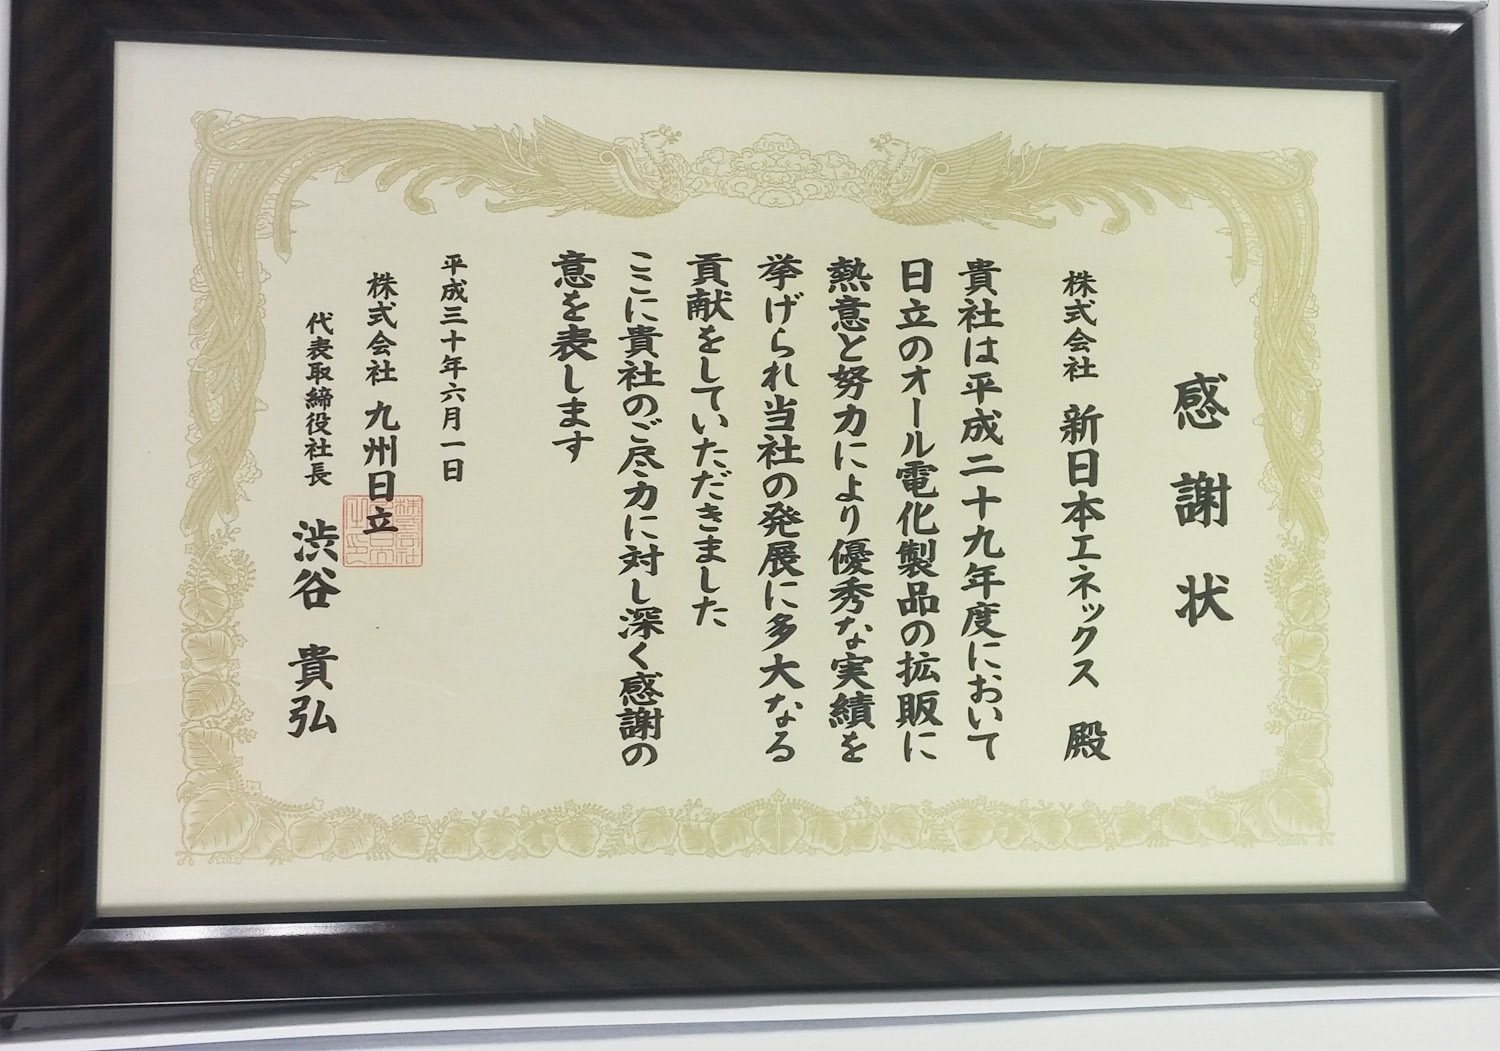 感謝状
株式会社 新日本エネックス 殿
貴社は平成二十九年度において
日立のオール電化製品の拡販に
熱意と努力により優秀な実績を
挙げられ当社の発展に多大なる
貢献をしていただきました
ここに貴社のご尽力に対し深く感謝の
意を表します
平成三十年六月一日
株式会社 九州日立
代表取締役社長 渋谷 貴弘